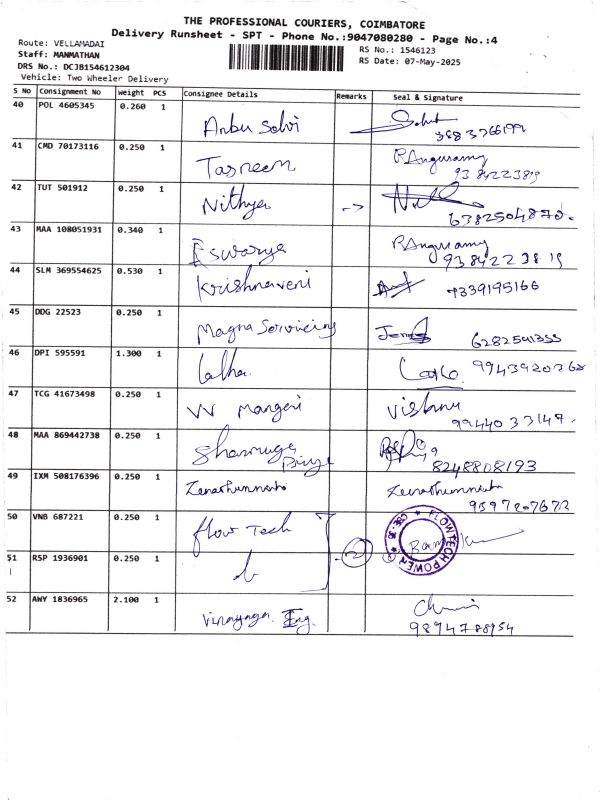 THE PROFESSIONAL COURIERS, COIMBATORE
Delivery Runsheet - SPT - Phone No.:9047080280 - Page No.:4
Route: VELLAMADAI
Staff: MANMATHAN
DRS No.: DCJB154612304
Vehicle: Two Wheeler Delivery
RS No.: 1546123
RS Date: 07-May-2025
S No Consignment No Weight PCS Consignee Details Remarks Seal & Signature
40 POL 4605345 0.260 1 Anbu Selvi
41 CMD 70173116 0.250 1 Tasneem R Angusamy
9384223819
42 TUT 501912 0.250 1 Nithya
6382504870.
43 MAA 108051931 0.340 1 Eswarya R Angusamy
9384223819
44 SLM 369554625 0.530 1 Krishnaveni 9339195166
45 DDG 22523 0.250 1 Magna Servicing
46 DPI 595591 1.300 1 Latha. 9943920368
47 TCG 41673498 0.250 1 VV Mangeri Vishnu
9944033147.
48 MAA 869442738 0.250 1 Shanmuga
Priya
8248808193
49 IXM 508176396 0.250 1
9597207672
50 VNB 687221 0.250 1 flow Tech FLOWTECH POWER
CBE-35
51 RSP 1936901 0.250 1 2
52 AWY 1836965 2.100 1 Vinayaga Eng.
9894788954